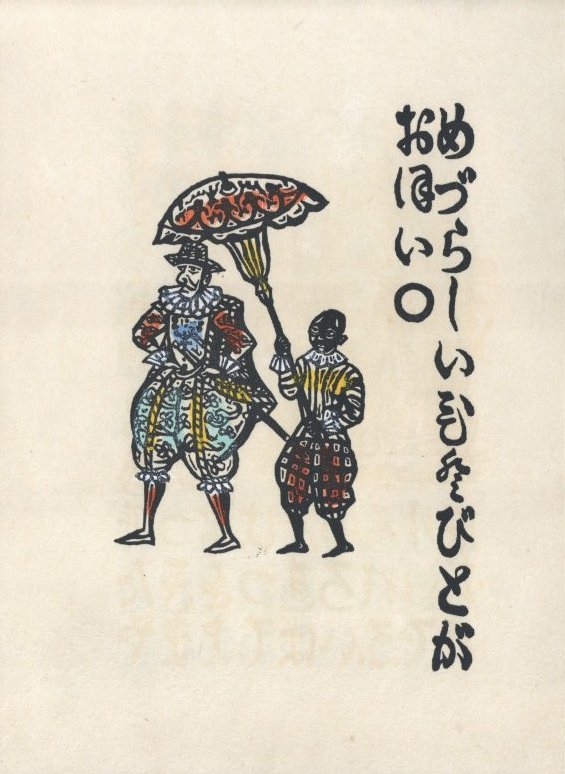 めづらしい びとが
おほい○